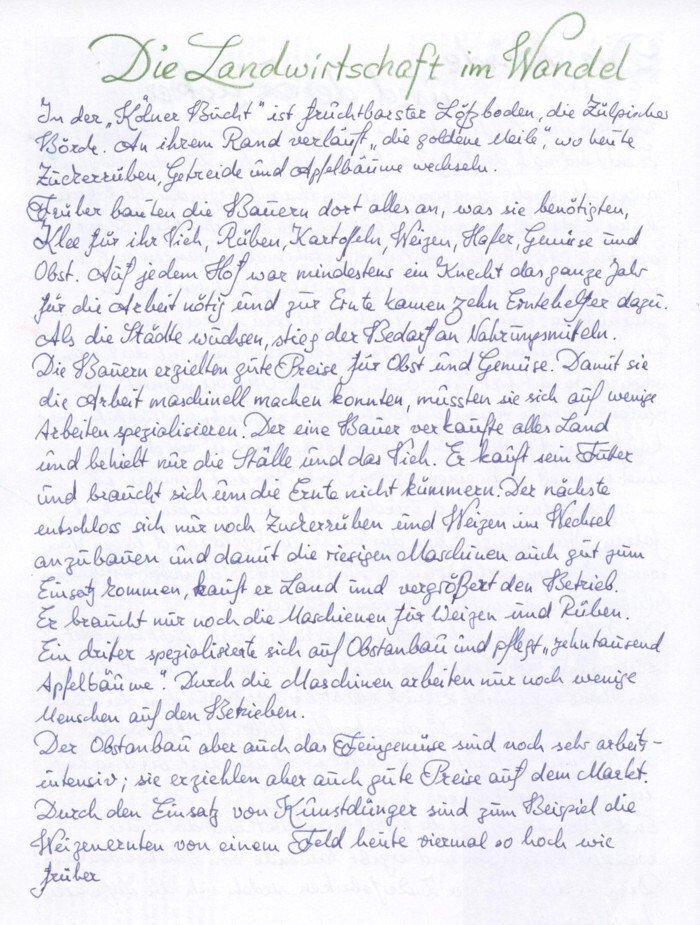 Die Landwirtschaft im Wandel
In der „Kölner Bucht" ist fruchtbarster Lößboden, die Zülpicher
Börde. An ihrem Rand verläuft „die goldene Meile", wo heute
Zuckerrüben, Getreide und Apfelbäume wechseln.
Früher bauten die Bauern dort alles an, was sie benötigten,
Klee für ihr Vieh, Rüben, Kartoffeln, Weizen, Hafer, Gemüse und
Obst. Auf jedem Hof war mindestens ein Knecht das ganze Jahr
für die Arbeit nötig und zur Ernte kamen zehn Erntehelfer dazu.
Als die Städte wuchsen, stieg der Bedarf an Nahrungsmitteln.
Die Bauern erzielten gute Preise für Obst und Gemüse. Damit sie
die Arbeit maschinell machen konnten, mussten sie sich auf wenige
Arbeiten spezialisieren. Der eine Bauer verkaufte alles Land
und behielt nur die Ställe und das Vieh. Er kauft sein Futter
und braucht sich um die Ernte nicht kümmern. Der nächste
entschloss sich nur noch Zuckerrüben und Weizen im Wechsel
anzubauen und damit die riesigen Maschinen auch gut zum
Einsatz kommen, kauft er Land und vergrößert den Betrieb.
Er braucht nur noch die Maschienen für Weizen und Rüben.
Ein driter spezialisierte sich auf Obstanbau und pflegt „zehntausend
Apfelbäume". Durch die Maschinen arbeiten nur noch wenige
Menschen auf den Betrieben.
Der Obstanbau aber auch das Feingemüse sind noch sehr arbeits-
intensiv; sie erziehlen aber auch gute Preise auf dem Markt.
Durch den Einsatz von Kunstdünger sind zum Beispiel die
Weizenernten von einem Feld heute viermal so hoch wie
früher